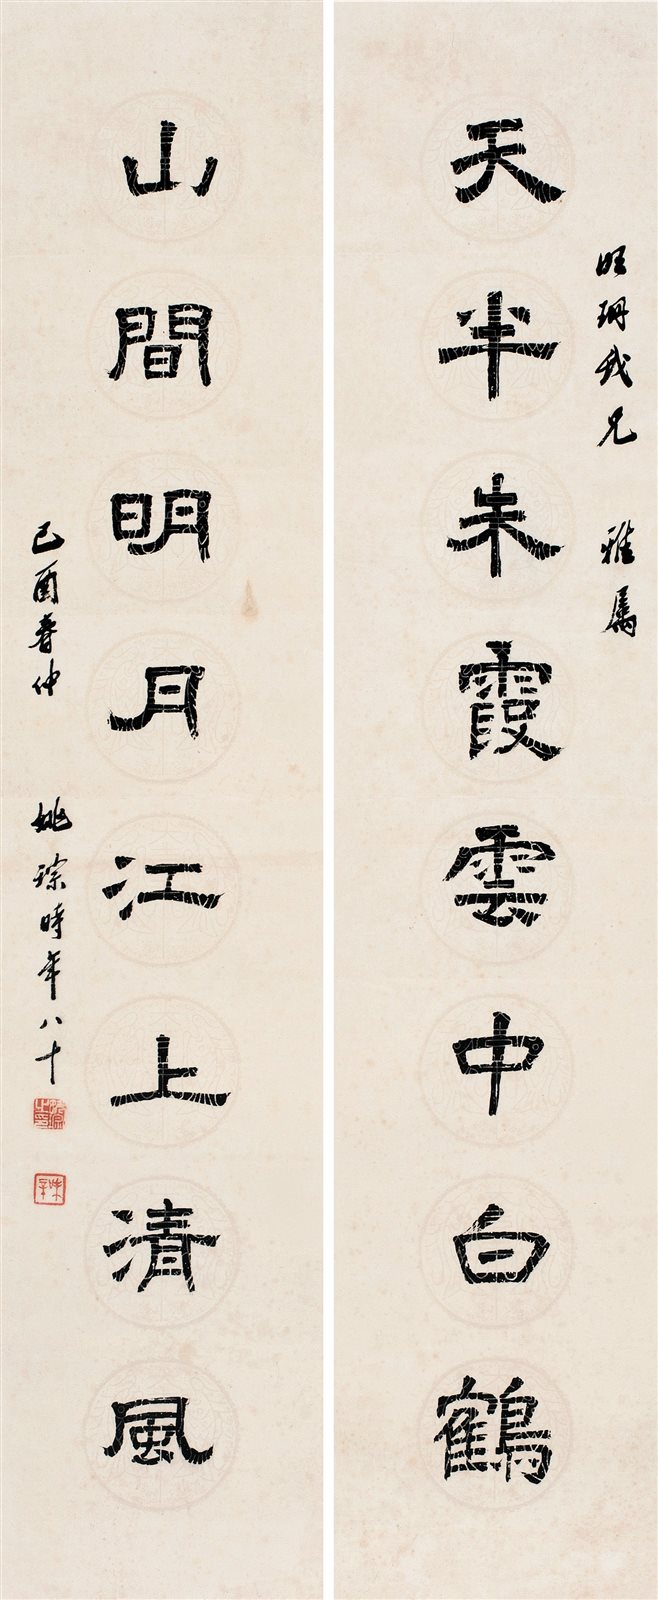 旺珊我兄　雅屬
天半朱霞雲中白鶴
山間明月江上清風
己酉春仲　姚琮時年八十
琮印
味辛